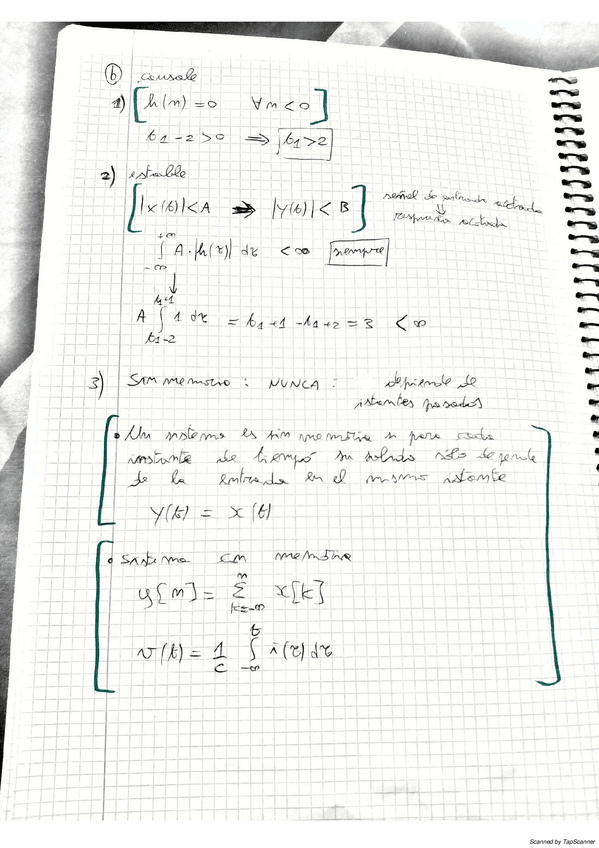 b causale
1) [h(n) = 0 ∀n < 0]
t1 - 2 > 0 ⟹ t1 > 2
2) estable
[|x(t)| < A ⟹ |y(t)| < B] señal de entrada acotada
⇓
respuesta acotada
∫_{-∞}^{+∞} A·|h(τ)| dτ < ∞ siempre
↓
A ∫_{t1-2}^{t1+1} 1 dτ = t1 + 1 - t1 + 2 = 3 < ∞
3) Sin memoria : NUNCA : depiende de
istantes pasados
• Un sistema es sin memoria si para cada
instante de tiempo su salida sólo depende
de la entrada en el mismo istante
y(t) = x(t)
• Sistema con memoria
y[n] = Σ_{k=-∞}^{n} x[k]
v(t) = 1/C ∫_{-∞}^{t} i(τ) dτ
Scanned by TapScanner